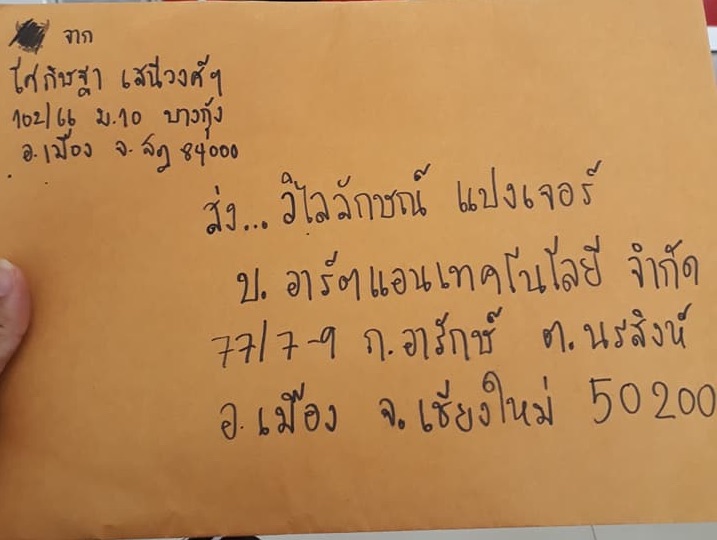 จาก
โศภิษฐา เสนีวงศ์ฯ
102/66 ม.10 บางกุ้ง
อ.เมือง จ.สฎ 84000
ส่ง... วิไลลักษณ์ แปงเจอร์
บ. อาร์ตแอนเทคโนโลยี จำกัด
77/7-9 ถ.อารักษ์ ต.นรสิงห์
อ.เมือง จ.เชียงใหม่ 50200